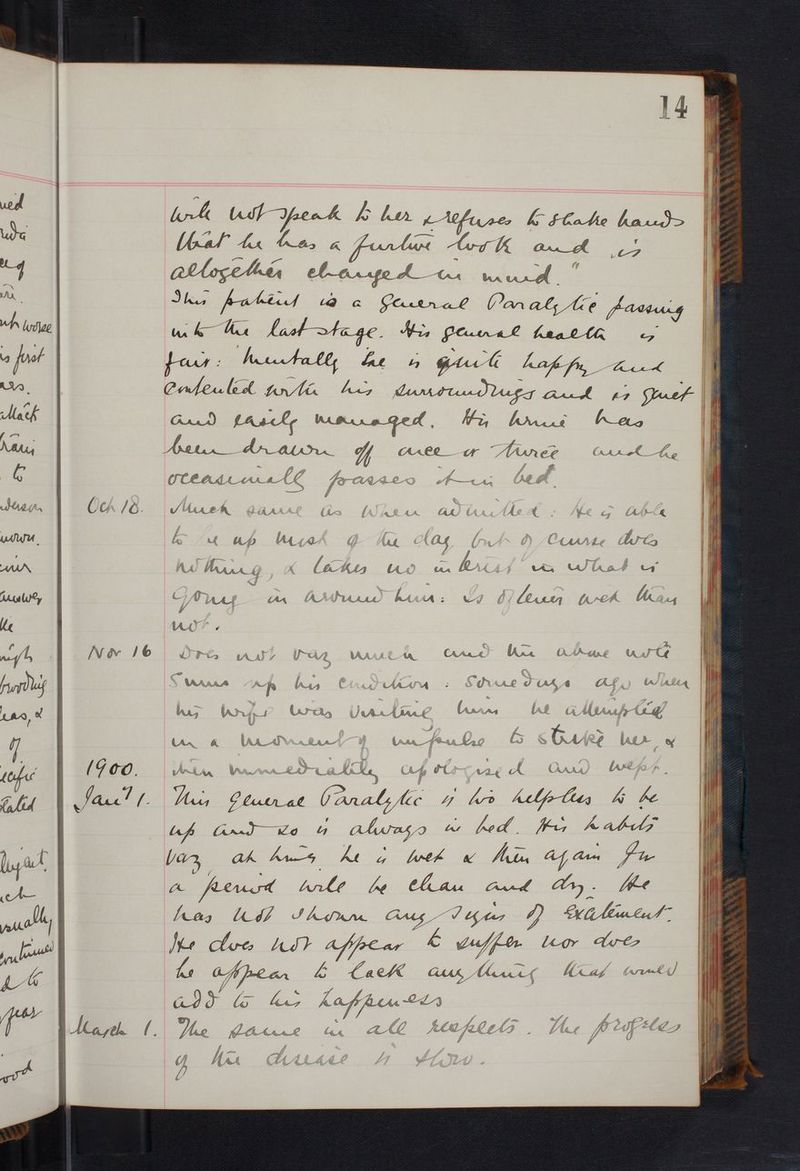 14
will not speak to her & refuses to shake hands
that he has a furtive look and is
altogether changed in mind."
This patient is a General Paralytic passing
into the last stage. His general health is
fair: Mentally he is quite happy and
contented with his surroundings and is quiet
and easily managed. His urine has
been drawn off once or twice and he
occasionally passes it in bed.
Oct 18. Much same as when admitted: He is able
to be up most of the day, but of course does
nothing, & takes no interest in what is
going on around him: Is oftener wet than
not.
Nov 16 Does not vary much and the above note
Sums up his condition: some days ago when
his wife was visiting him he attempted
in a moment of impulse to strike her, &
1900. then immediately apologised and wept.
Jany 1. This General Paralytic is too helpless to be
up and so is always in bed. His habits
vary, at times he is wet & then again for
a period will be clean and dry. He
has not shown any signs of Excitement.
He does not appear to suffer nor does
he appear to lack anything that would
add to his happiness
March 1. The same in all respects. The progress
of the disease is slow.